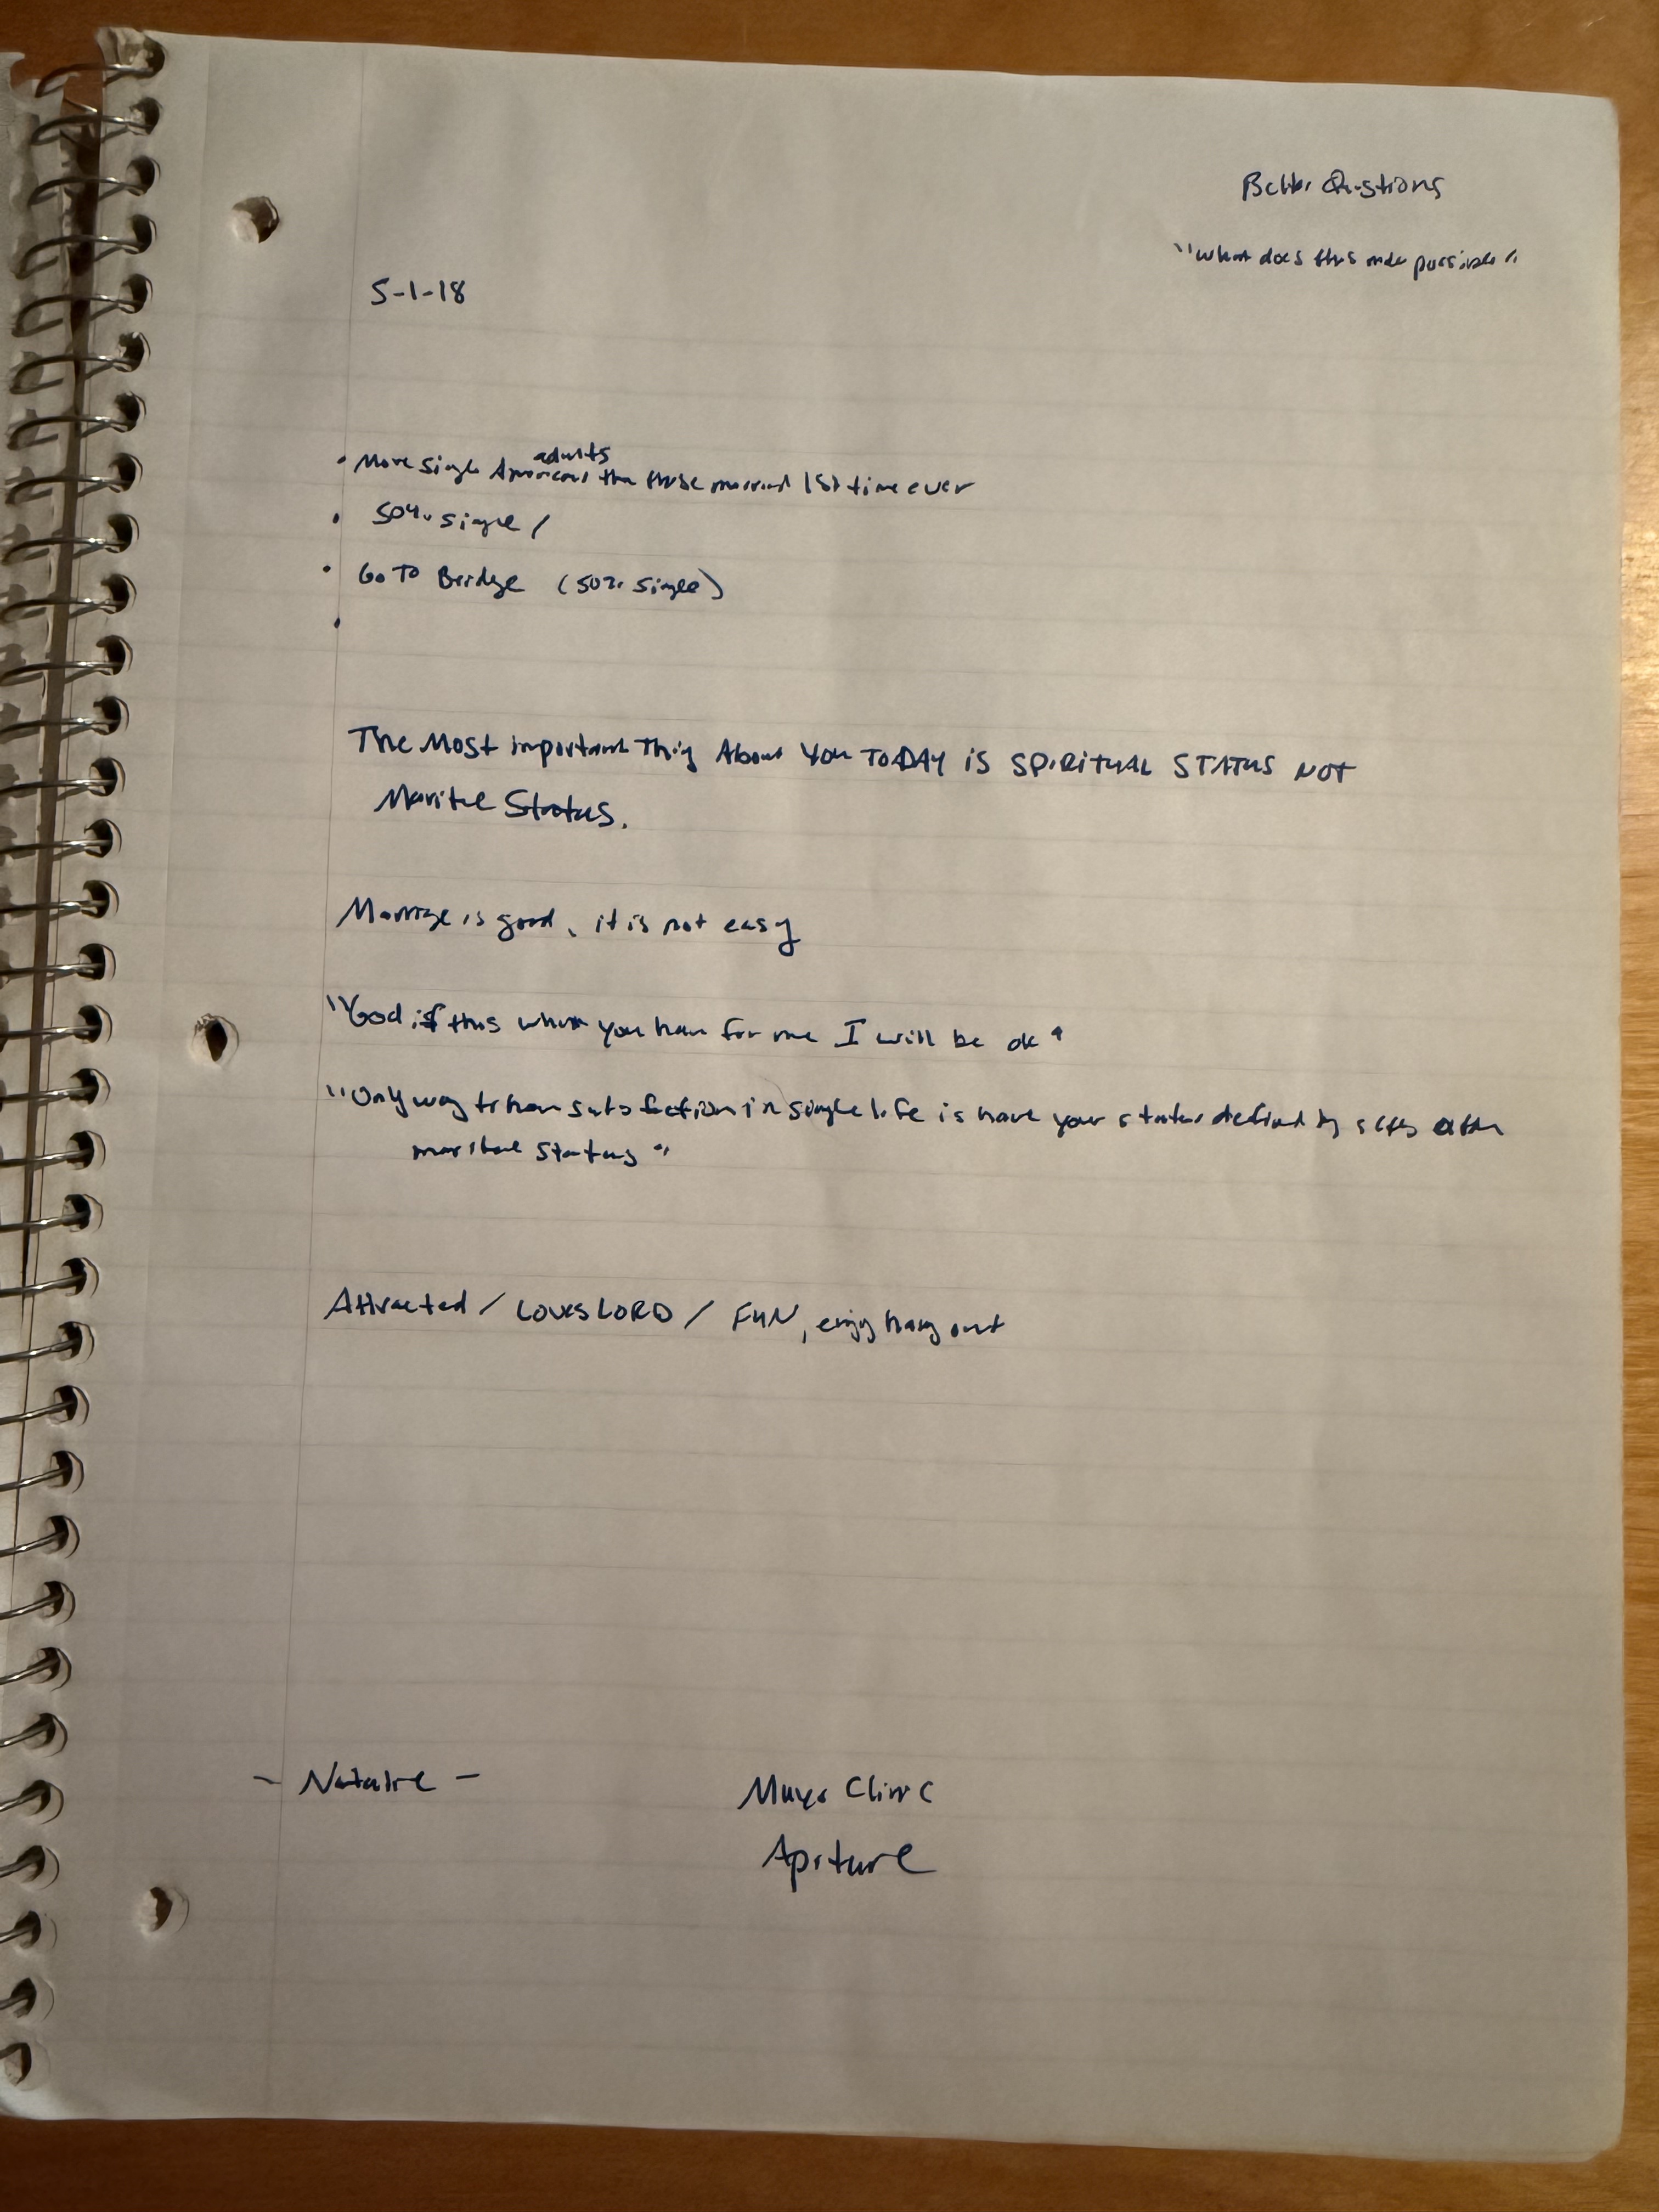 Better Questions
"What does this make possible"
5-1-18
• More single American adults than those married 1st time ever
• 50% single /
• Go To Bridge (50% single)
•
The Most Important Thing About You TODAY is SPIRITUAL STATUS NOT
Marital Status.
Marriage is good, it is not easy
"God if this what you have for me I will be ok"
"Only way to have satisfaction in single life is have your status defined by
marital status"
Attracted / LOVES LORD / FUN, enjoy hang out
Mayo Clinic
Apiture